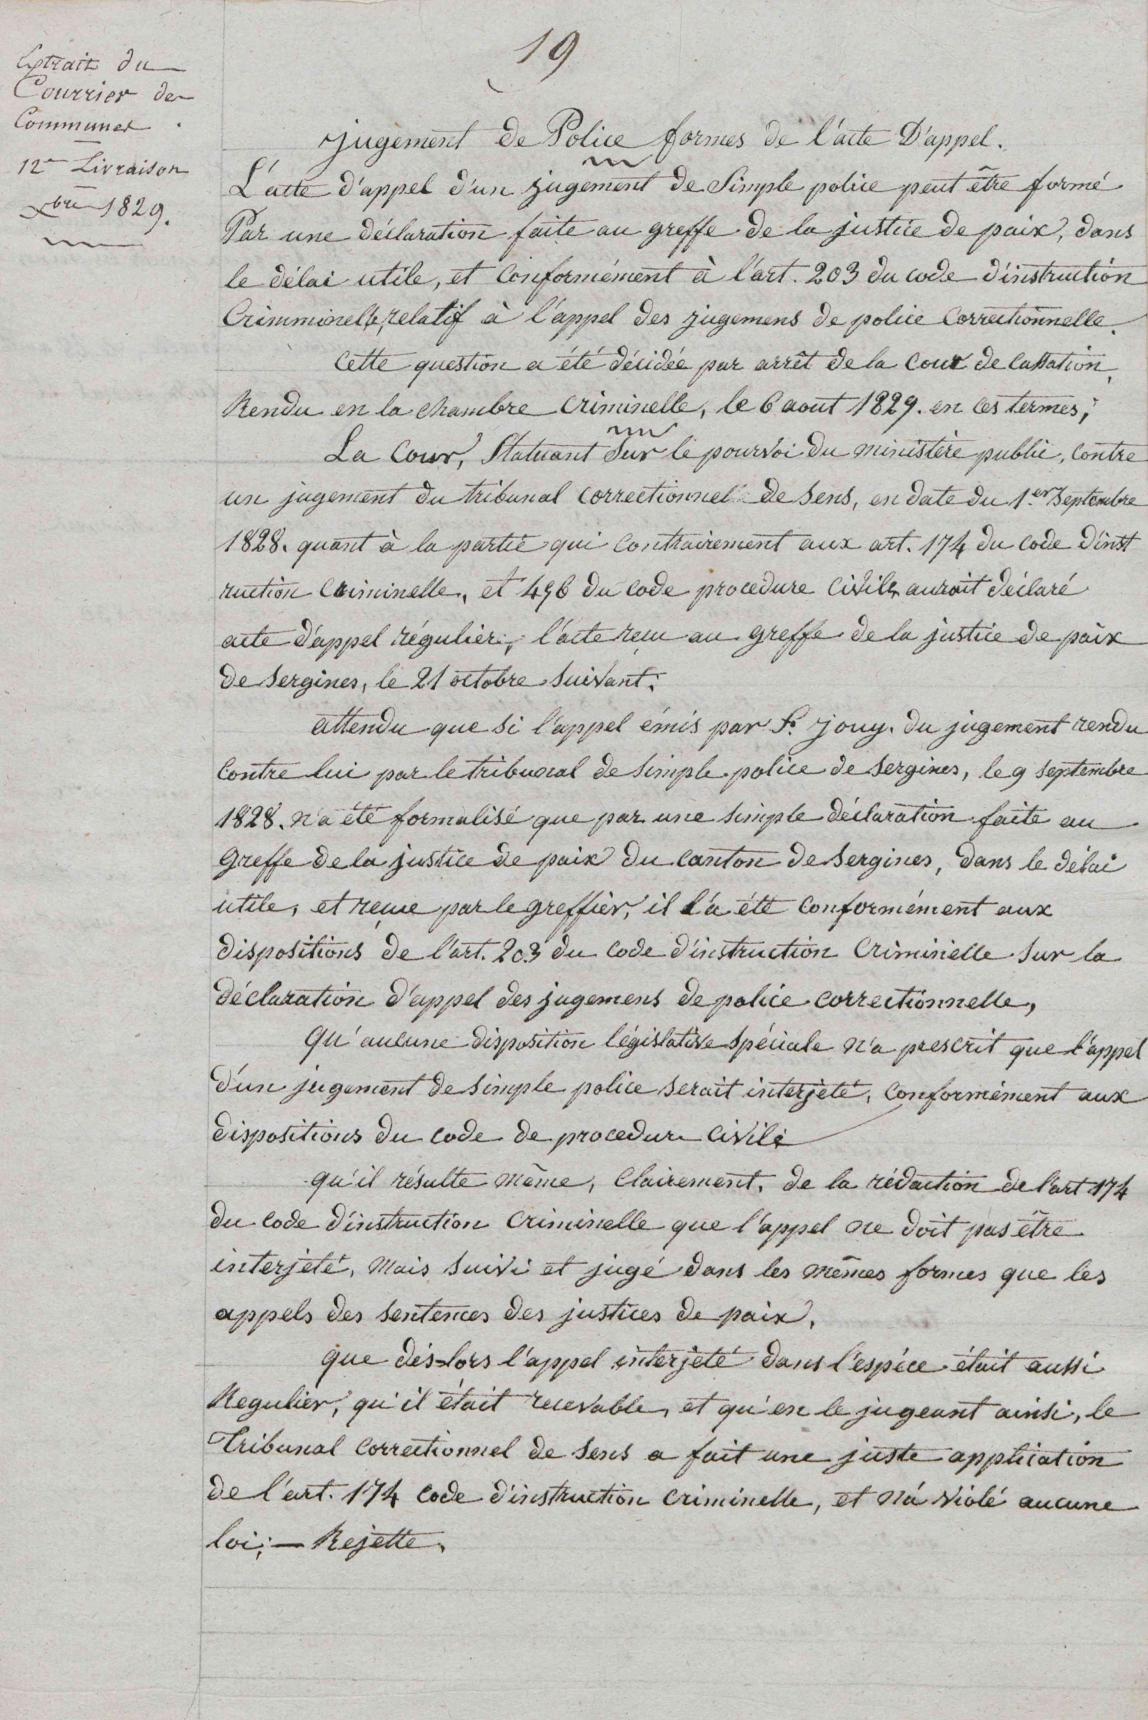 19
Extrait du
Courrier des
Communes.
12e Livraison
Xbre 1829.
jugement de Police formes de l'acte D'appel.
L'acte d'appel d'un jugement de Simple police peut être formé
Par une déclaration faite au greffe de la justice de paix, dans
le délai utile, et conformément à l'art. 203 du code d'instruction
Crimminelle, relatif à l'appel des jugemens de police correctionnelle.
Cette question a été décidée par arrêt de la cour de cassation,
Rendu en la chambre criminelle, le 6 aout 1829. en ces termes;
La Cour, Statuant Sur le pourvoi du ministère public, contre
un jugement du tribunal correctionnel de Sens, en date du 1.er Septembre
1828. quant à la partie qui contrairement aux art. 174 du code d'inst
ruction criminelle, et 456 du code procedure civile, auroit déclaré
acte d'appel régulier, l'acte reçu au greffe de la justice de paix
de Sergines, le 21 octobre suivant;
attendu que si l'appel émis par S.r jouy. du jugement rendu
contre lui par le tribunal de simple police de Sergines, le 9 septembre
1828. n'a été formalisé que par une simple déclaration faite au
Greffe de la justice de paix du canton de Sergines, dans le délai
utile, et reçue par le greffier, il l'a été conformément aux
dispositions de l'art. 203 du code d'instruction criminelle sur la
déclaration d'appel des jugemens de police correctionnelle,
Qu'aucune disposition législative spéciale n'a prescrit que l'appel
d'un jugement de simple police serait interjeté, conformément aux
dispositions du code de procedure civile
qu'il résulte même, clairement, de la rédaction de l'art 174
du code d'instruction criminelle que l'appel ne doit pas être
interjeté, mais suivi et jugé dans les mêmes formes que les
appels des sentences des justices de paix,
que dés-lors l'appel interjeté dans l'espéce était aussi
Regulier, qu'il était recevable, et qu'en le jugeant ainsi, le
Tribunal correctionnel de Sens a fait une juste application
de l'art. 174 code d'instruction criminelle, et n'a violé aucune
loi; — Rejette.